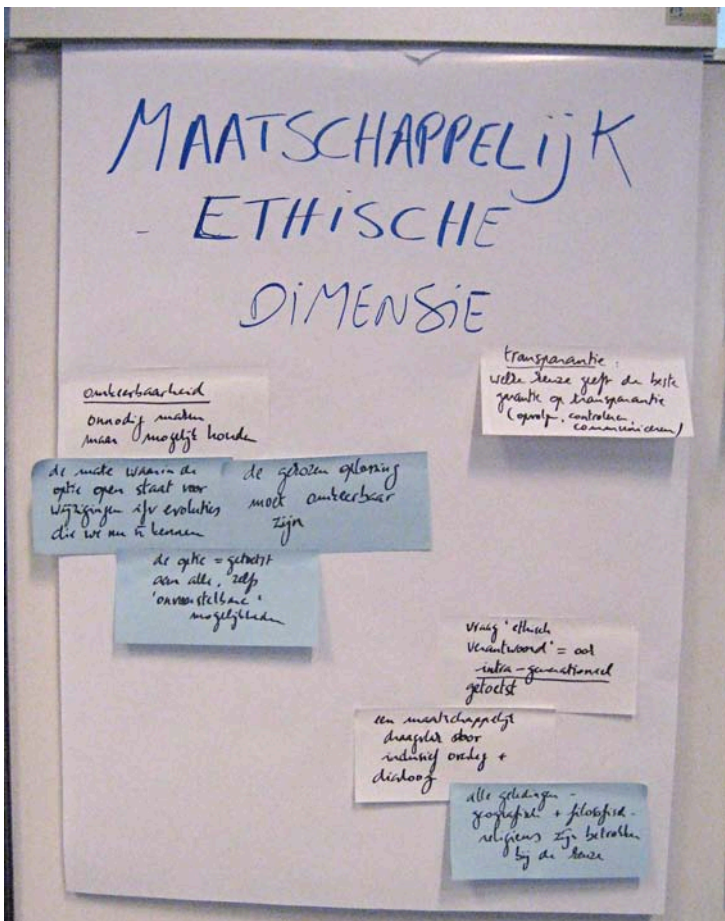 MAATSCHAPPELIJK
- ETHISCHE
DIMENSIE
omkeerbaarheid
onnodig maken
maar mogelijk houden
de mate waarin de
optie open staat voor
wijzigingen ifv evoluties
die we nu ñ kennen
de gekozen oplossing
moet omkeerbaar
zijn
de optie = getoetst
aan alle, zelfs
'onvoorstelbare'
mogelijkheden
transparantie :
welke keuze geeft de beste
garantie op transparantie
(opvolgen, controleren,
communiceren)
vraag 'ethisch
verantwoord' = ook
intra-generationeel
getoetst
een maatschappelijk
draagvlak door
inclusief overleg +
dialoog
alle geledingen -
geografisch + filosofisch-
religieus zijn betrokken
bij de keuze